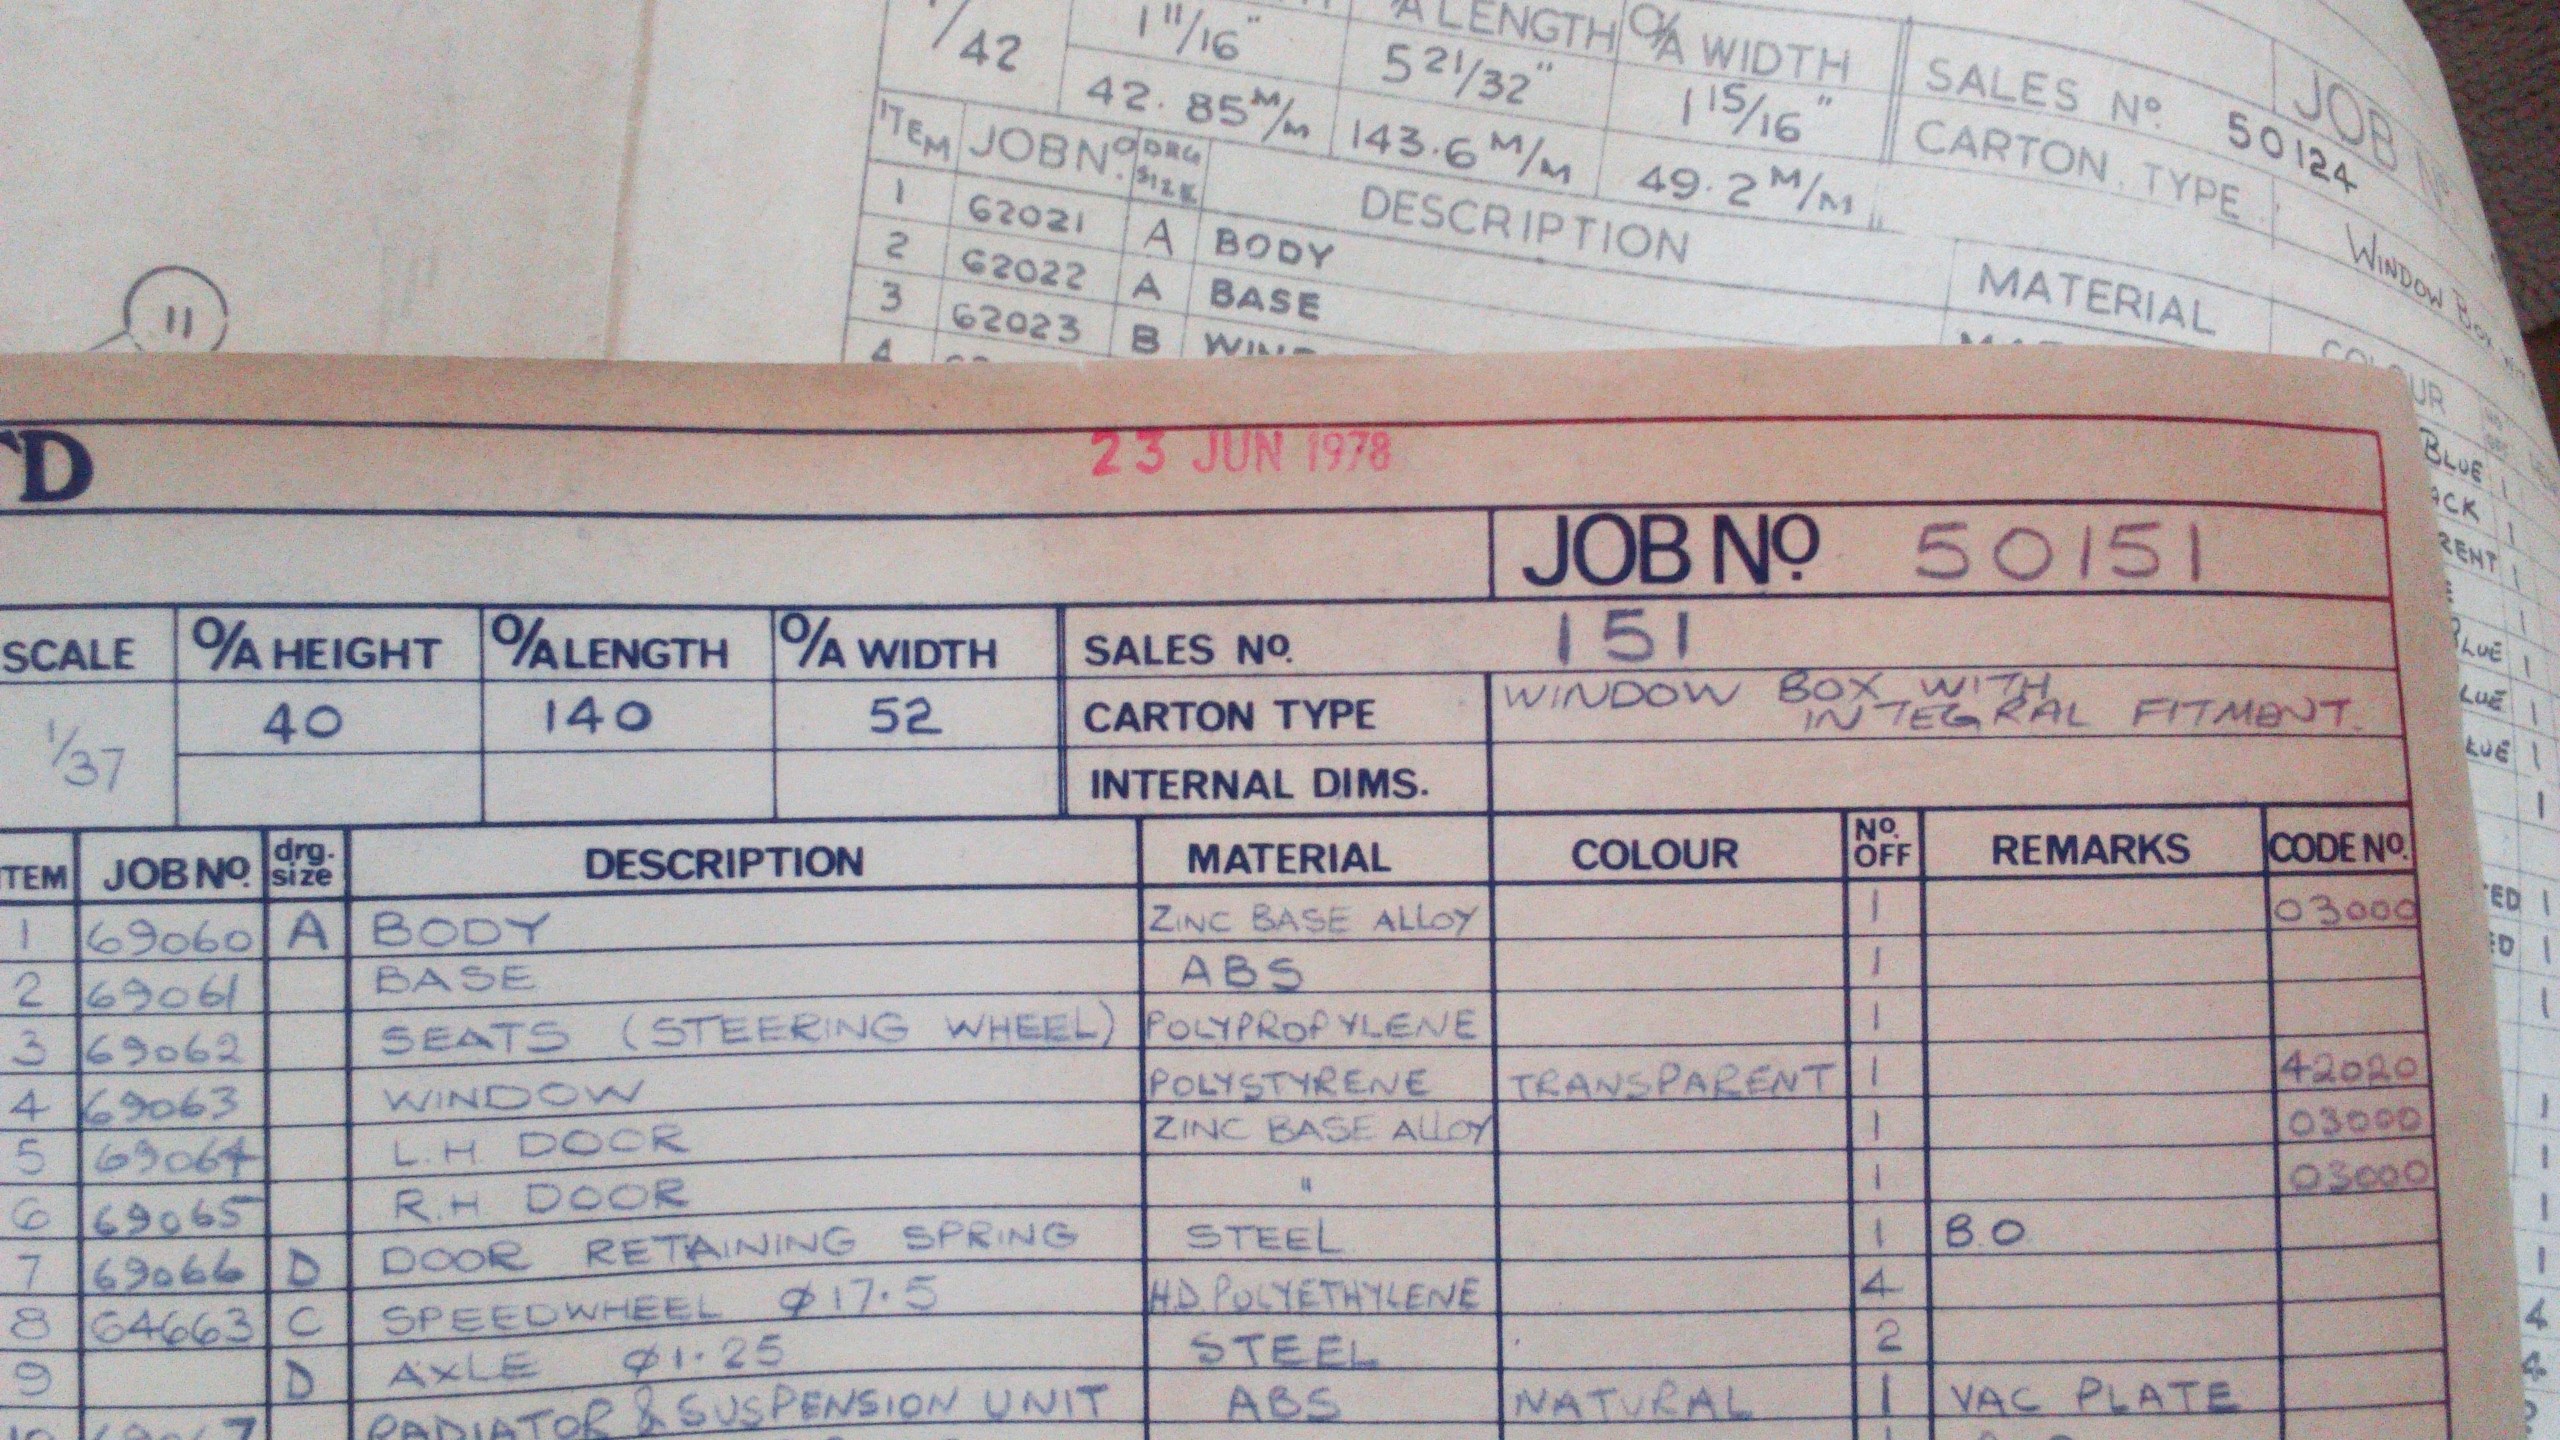 1/42 1 11/16" 5 21/32" 1 15/16"
A LENGTH O/A WIDTH SALES No. 50124 JOB No.
42.85 M/M 143.6 M/M 49.2 M/M CARTON TYPE WINDOW BOX
ITEM JOB No. DRG SIZE DESCRIPTION MATERIAL COLOUR
1 62021 A BODY BLUE 1
2 62022 A BASE
3 62023 B
4
11
TD
23 JUN 1978
JOB No. 50151
SCALE O/A HEIGHT O/A LENGTH O/A WIDTH SALES No. 151
1/37 40 140 52 CARTON TYPE WINDOW BOX WITH
INTEGRAL FITMENT.
INTERNAL DIMS.
TEM JOB No. drg. size DESCRIPTION MATERIAL COLOUR No. OFF REMARKS CODE No.
1 69060 A BODY ZINC BASE ALLOY 1 03000
2 69061 BASE ABS 1
3 69062 SEATS (STEERING WHEEL) POLYPROPYLENE 1
4 69063 WINDOW POLYSTYRENE TRANSPARENT 1 42020
5 69064 L.H. DOOR ZINC BASE ALLOY 1 03000
6 69065 R.H DOOR " 1 03000
7 69066 D DOOR RETAINING SPRING STEEL 1 B.O
8 64663 C SPEEDWHEEL Ø17.5 H.D. POLYETHYLENE 4
9 D AXLE Ø1.25 STEEL 2
RADIATOR & SUSPENSION UNIT ABS NATURAL 1 VAC PLATE